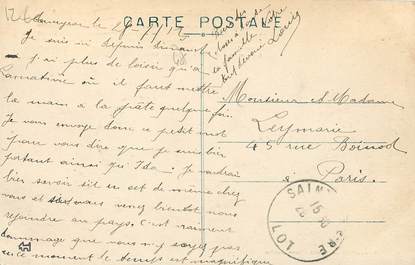 CARTE POSTALE
le
Je suis ici depuis dimanche
j'ai plus de loisir qu'à
où il faut mettre
la main à la pâte quelque fois
Je vous envoye donc ce petit mot
pour vous dire que je suis bien
portant ainsi qu'Ida. Je voudrai
bien savoir s'il en est de même chez
vous et si vous venez bientôt nous
rejoindre au pays. C'est vraiment
dommage que vous n'y soyez pas
en ce moment le temps est magnifique
la famille
tout dévoué Louis
Monsieur et Madame
Leymarie
45 rue Boinod
Paris
SAINT
LOT